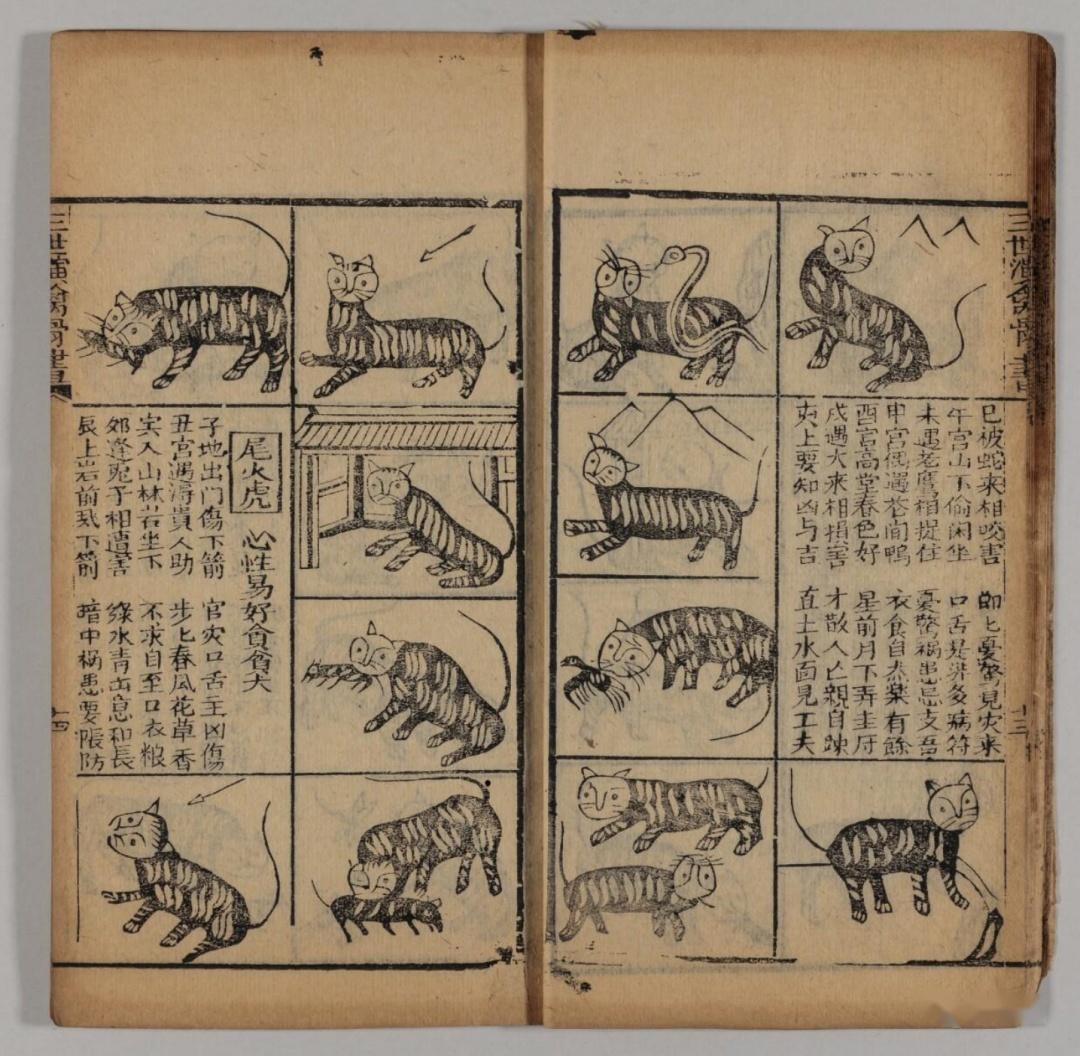 三世演禽骨書
巳被蛇来相咬害　即七憂驚見灾来
午宮山下偷闲坐　口舌是非多病符
未遇老鷹相捉住　憂驚禍患忌支吾
申宮偶遇花间鸭　衣食自添樂有餘
酉宮高堂春色好　星前月下弄圭
戌遇犬来相損害　才散人亡親自踈
亥上要知凶与吉　直土水面見工夫
十三
尾火虎
心性易好食貪犬
子地出門傷下箭　官灾口舌主凶傷
丑宮遇得貴人助　步上春風花草香
寅入山林岩坐下　不求自至口衣粮
卯逢兎子相遭害　綠水青山息和長
辰上岩前或下箭　暗中祸患要隄防
十四
三世演禽骨書